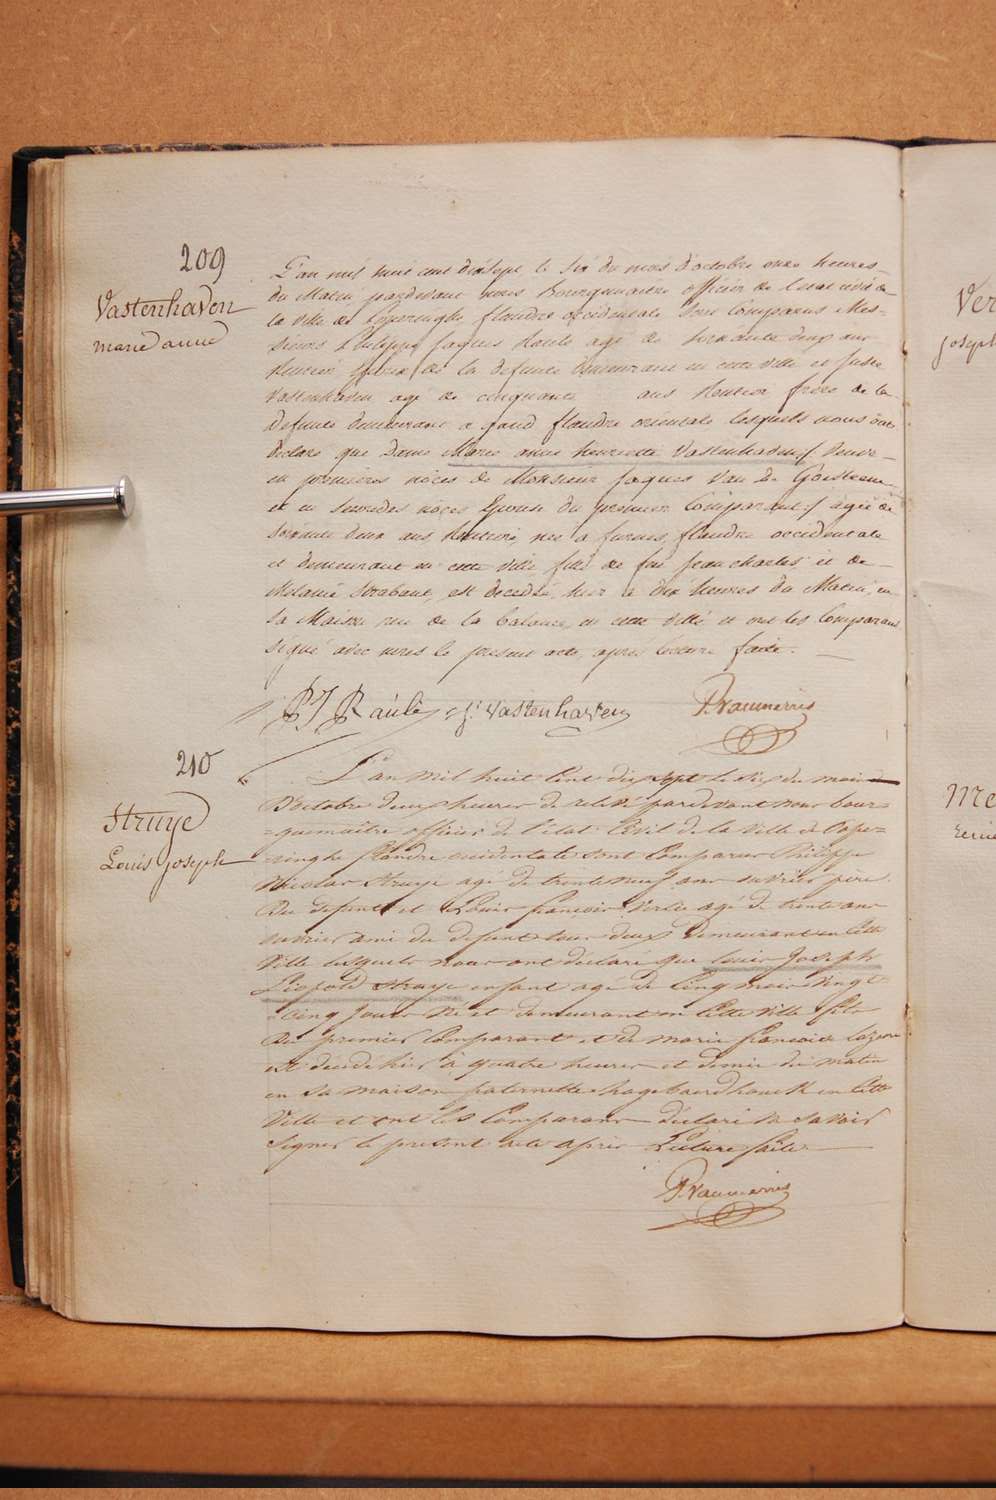 209
Vastenhaven
marie anne
L'an mil huit cent dixsept, le six du mois d'octobre onze heures
du Matin pardevant nous Bourguemaitre officier de l'etat civil de
la ville de Poperinghe flandre occidentale Sont Comparus Mes-
sieurs Philippe Jaques Raulé agé de soixante cinq ans
Rentier Epoux de la defunte demeurant en cette ville et Juste
Vastenhaven agé de cinquante ans Rentier frere de la
defunte demeurant a gand flandre orientale lesquels nous ont
declaré que Dame Marie anne henriette Vastenhaven veuve
en premieres nôces de Monsieur Jaques Van de
et en secondes nôces Epouse du premier Comparant agée de
soixante deux ans Rentiere, née a furnes, flandre occidentale
et demeurant en cette ville fille de feu Jean charles et de
Melanie est decedée hier a dix heures du Matin, en
sa Maison rue de la balance, en cette ville et ont les Comparans
signé avec nous le present acte, après lecture faite.
PJ Raulé J. Vastenhaven P. Vanmerris
210
Struye
Louis joseph
L'an mil huit Cent dix sept le six du mois
D'octobre deux heures de relevé pardevant nous bour-
=guemaître officier de l'etat Civil de la ville de Pope-
ringhe flandre occidentale sont Comparus Philippe
Nicolas Struye agé de trente neuf ans ouvrier père
Du defunt et Louis françois agé de trente ans
ouvrier ami du defunt tous deux demeurant en Cette
Ville lesquels nous ont déclaré que louis Joseph
Leopold Struye enfant agé de Cinq mois Vingt
Cinq jours né et demeurant en Cette Ville fils
du premier Comparant et de marie françoise
est decedé hier à quatre heures et demie du matin
en sa maison paternelle en Cette
Ville et ont les Comparans déclaré ne savoir
signer le present acte après Lecture faite
P. Vanmerris
Ver
joseph
Me